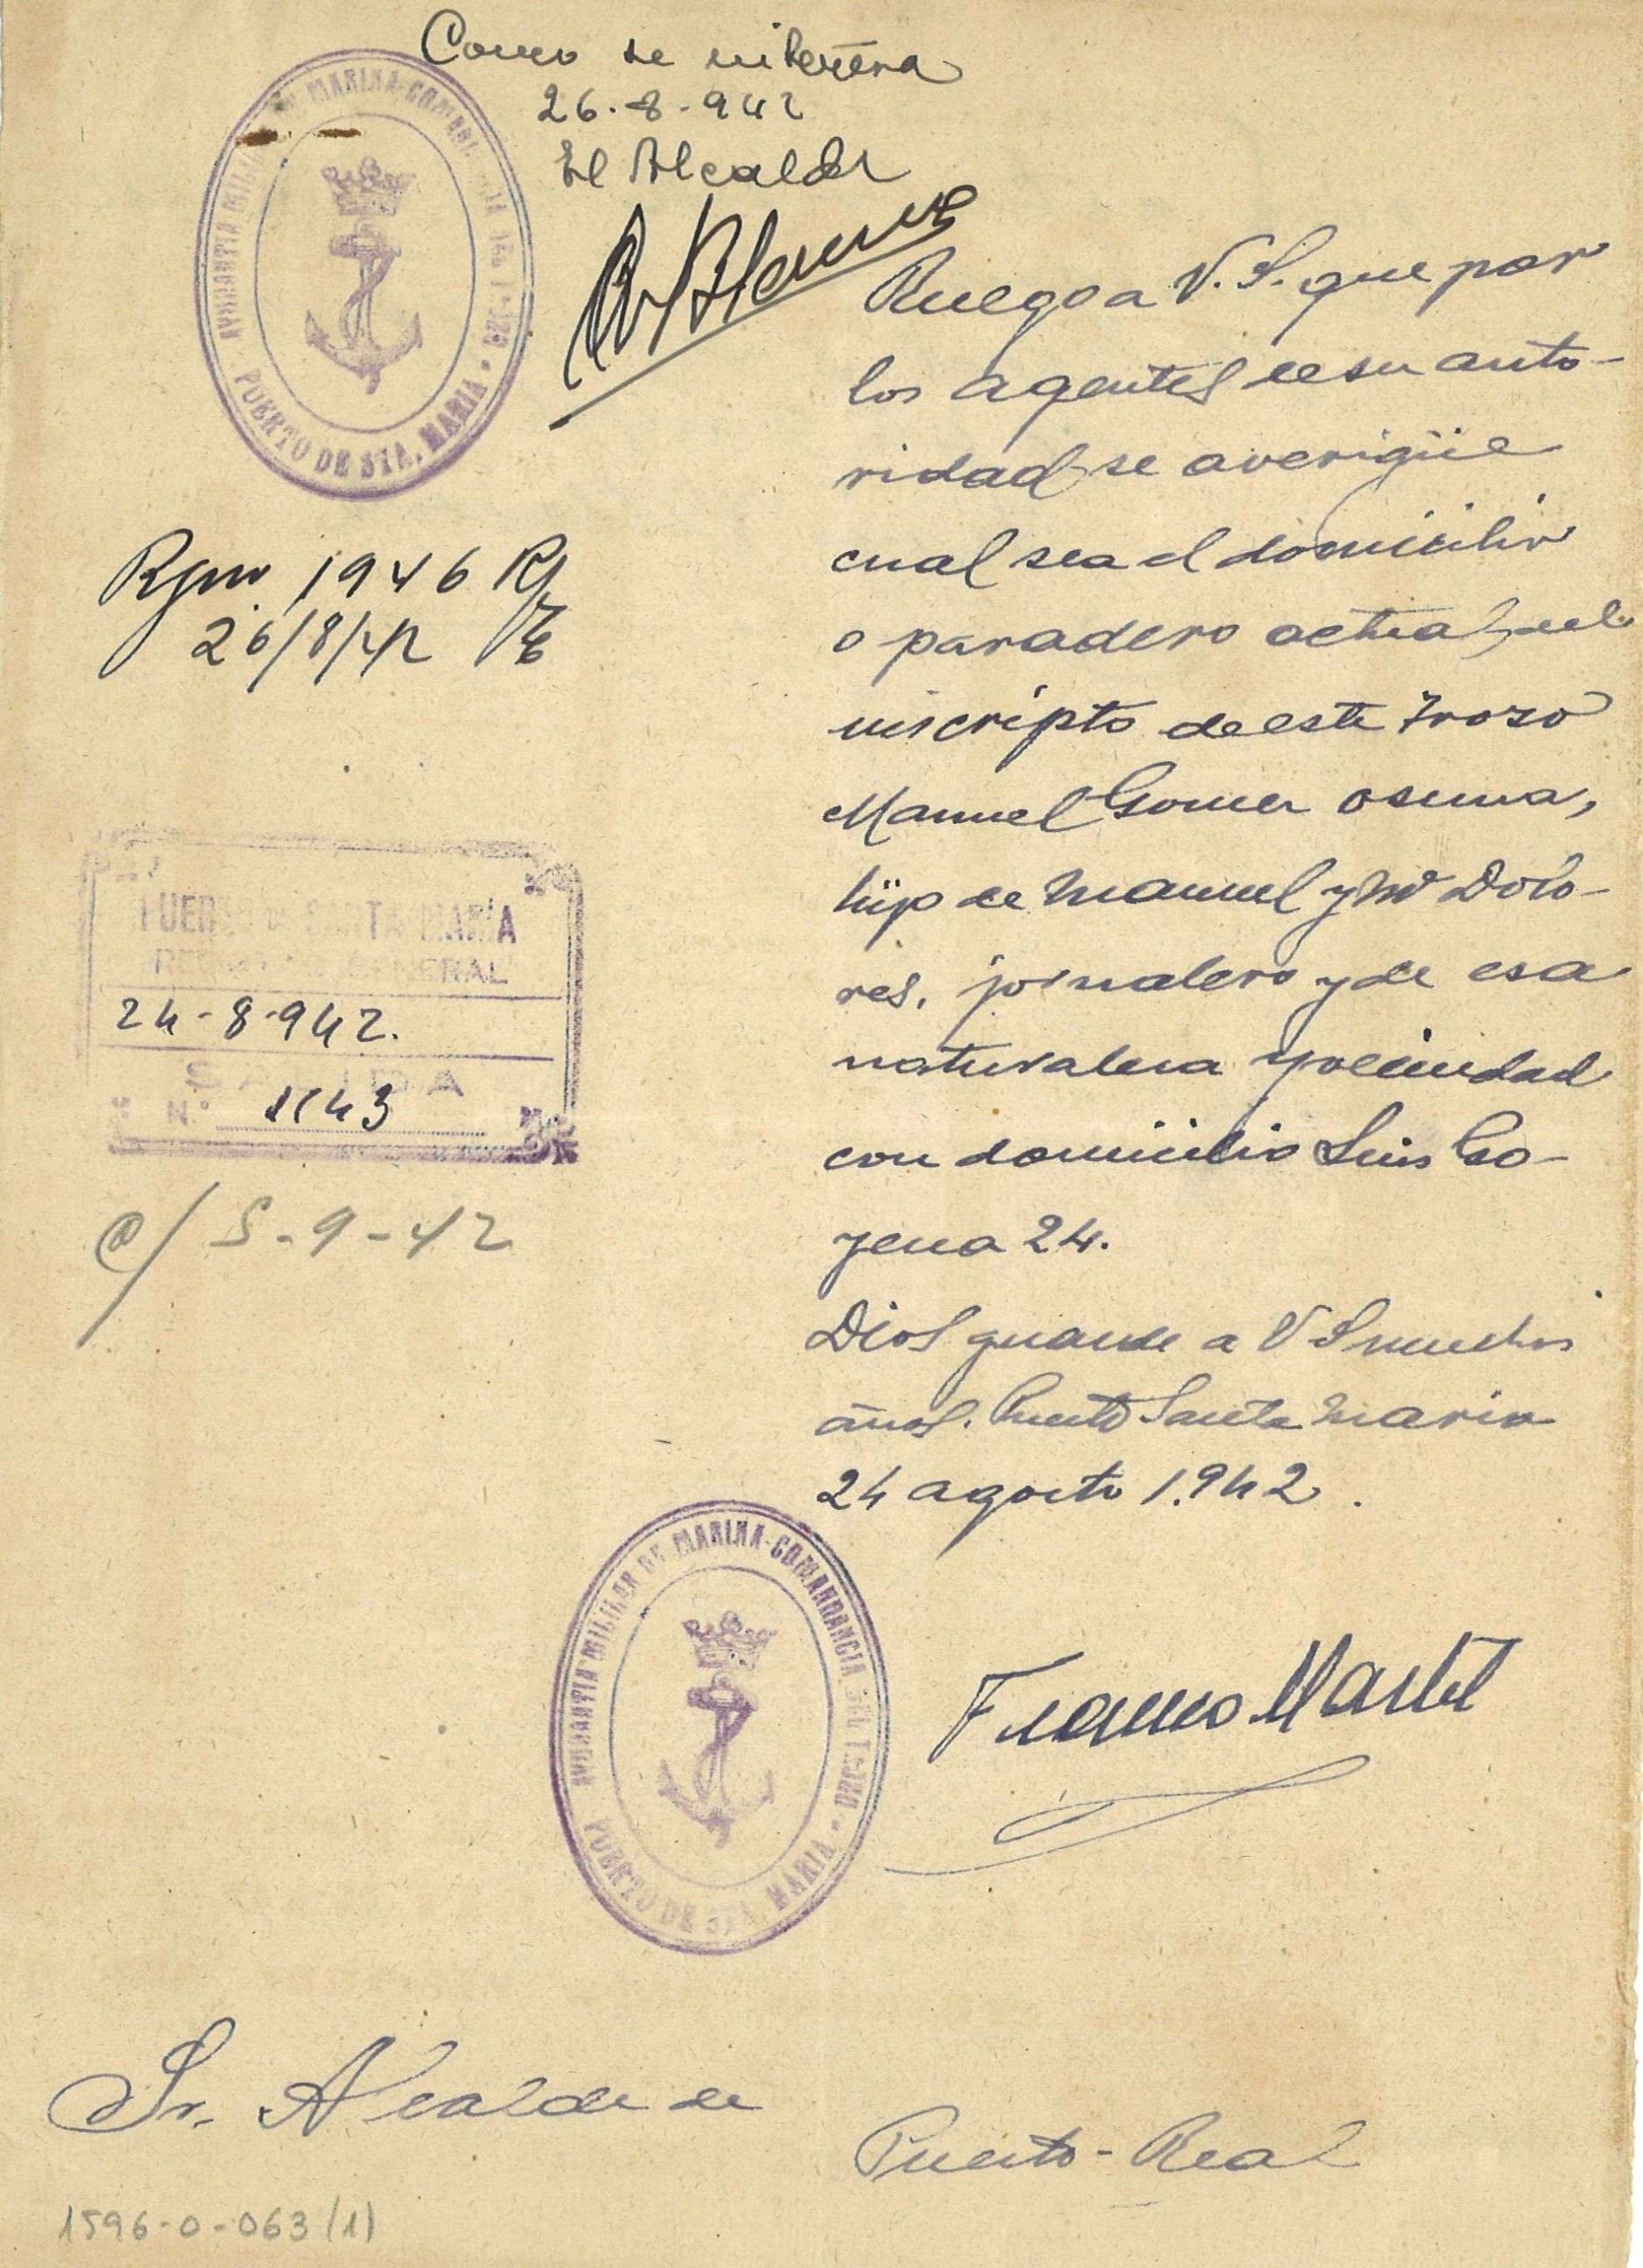 Como se interesa
26-8-942
El Alcalde
AYUDANTIA MILITAR DE MARINA-COMANDANCIA DEL TROZO
PUERTO DE STA. MARIA
Ruego a V.S. que por
los agentes de su auto-
ridad se averigüe
cual sea el domicilio
o paradero actual, del
inscripto de este Trozo
Manuel Gomez Osuna,
hijo de Manuel y Mª Dolo-
res, jornalero y de esa
naturaleza y vecindad
con domicilio Luis Co-
zena 24.
Dios guarde a V S muchos
años. Puerto Santa Maria
24 agosto 1.942.
1946
26/8/42
PUERTO DE SANTA MARIA
REGISTRO GENERAL
24-8-942.
SALIDA
N.º 1143
c/ 5-9-42
Franco Martel
AYUDANTIA MILITAR DE MARINA-COMANDANCIA DEL TROZO
PUERTO DE STA. MARIA
Sr. Alcalde de
Puerto-Real
1596-0-063 (1)